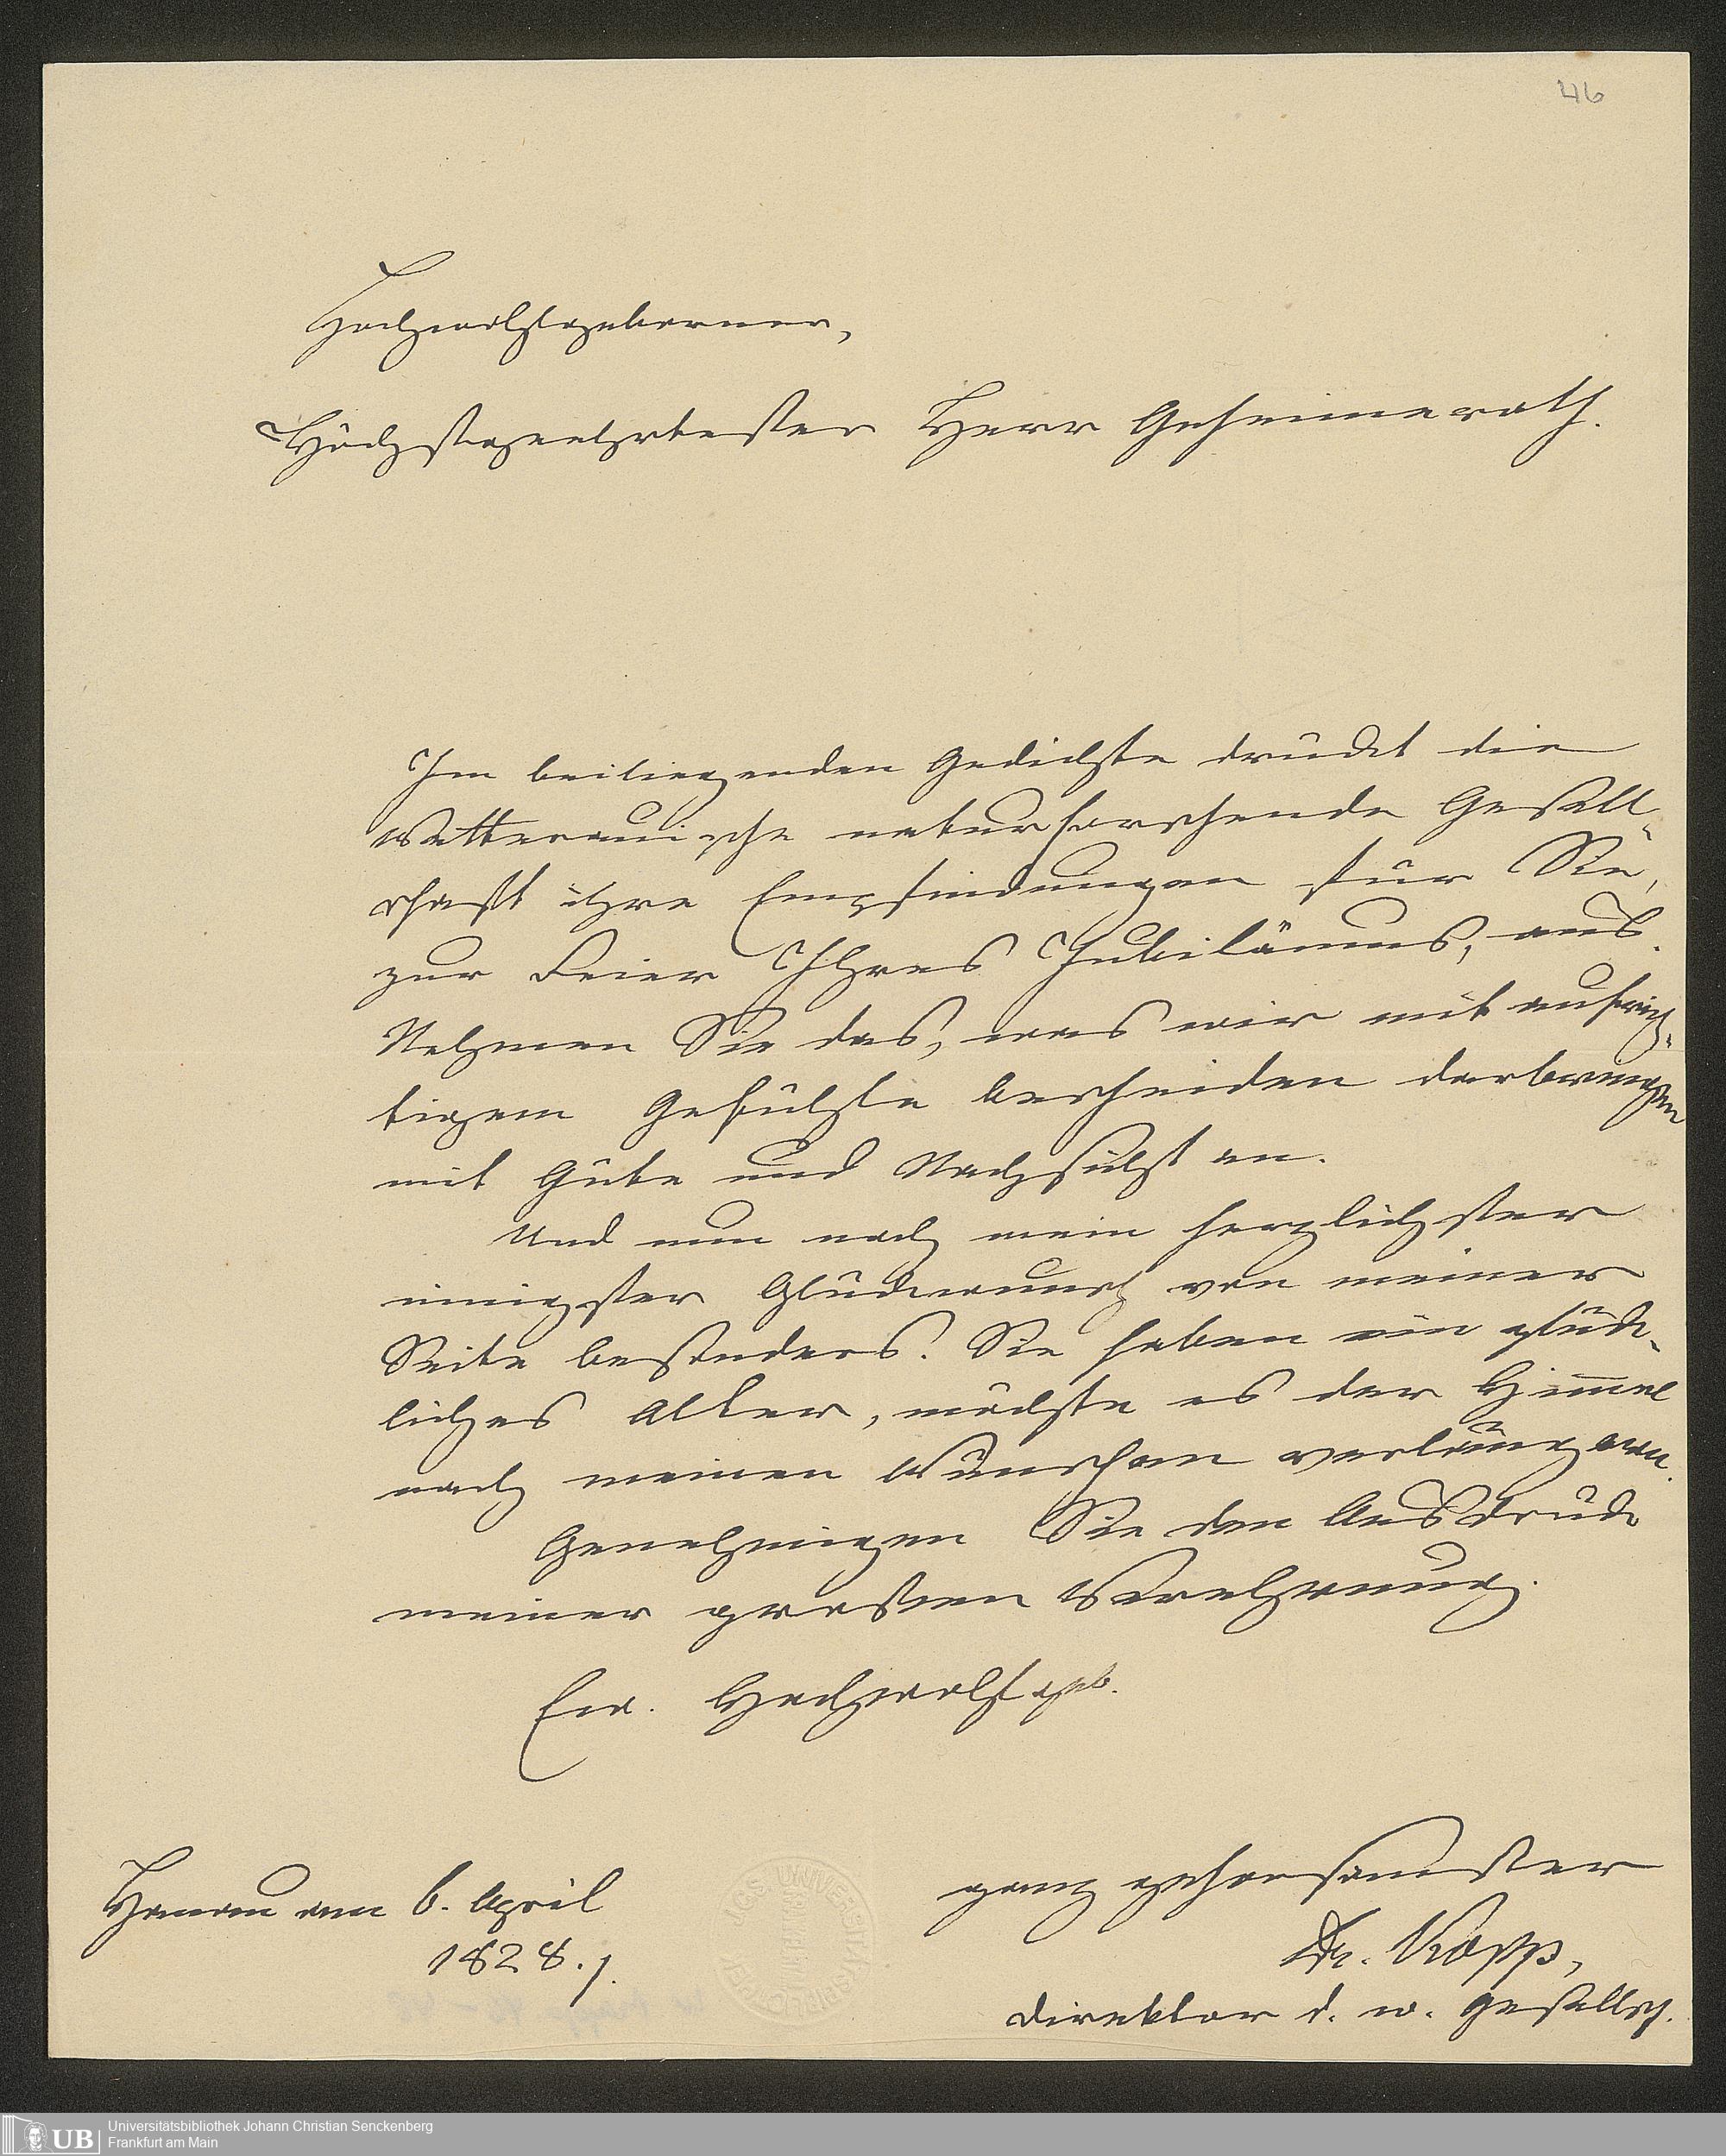 46
Hochwohlgeborner,
Höchstgeehrtester Herr Geheimerath.
Im beiliegenden Gedichte drückt die
Wetterauische naturforschende Gesell-
schaft ihre Empfindungen für Sie,
zur Feier Ihres Jubiläums, aus.
Nehmen Sie das, was wir mit aufrich-
tigem Gefühle bescheiden darbringen
mit Güte und Nachsicht an.
Und nun noch mein herzlichster
innigster Glückwunsch von meiner
Seite besonders. Sie haben ein glück-
liches Alter, möchte es der Him̅el
nach meinen Wünschen verlängern.
Genehmigen Sie den Ausdruck
meiner grosen Verehrung.
Ew. Hochwohlgeb.
ganz gehorsamster
Hanau am 6. April
1828.
Dr. Kopp,
Direktor d. w. Gesellsch.
UB
Universitätsbibliothek Johann Christian Senckenberg
Frankfurt am Main